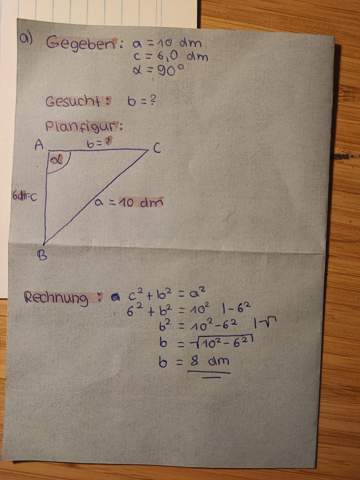 a) Gegeben: a = 10 dm
c = 6,0 dm
α = 90°
Gesucht: b = ?
Planfigur:
A b = ? C
α
= c a = 10 dm
B
Rechnung: c² + b² = a²
6² + b² = 10² |-6²
b² = 10² - 6² |√
b = √10² - 6²
b = 8 dm